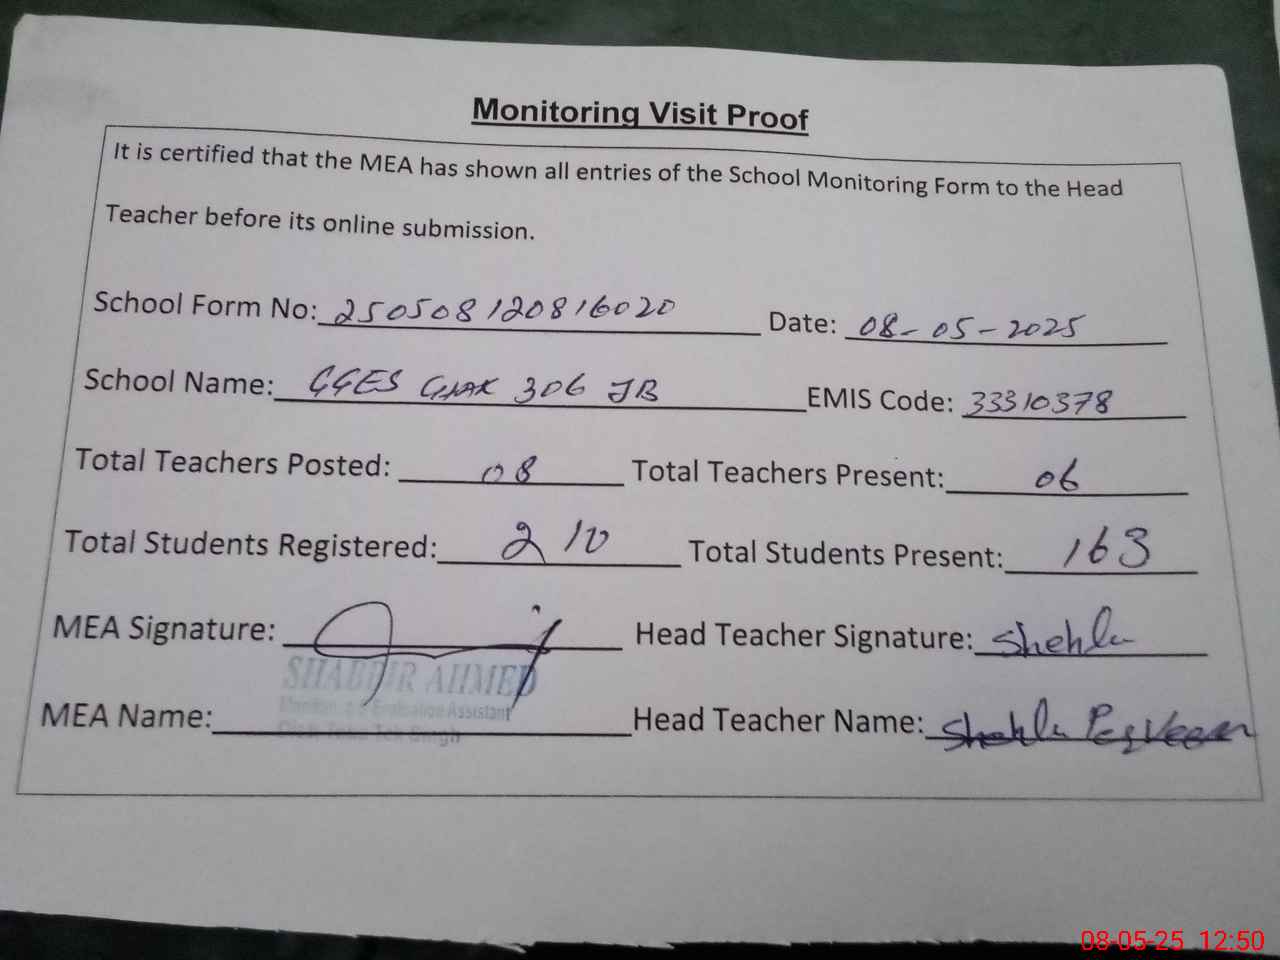 Monitoring Visit Proof
It is certified that the MEA has shown all entries of the School Monitoring Form to the Head
Teacher before its online submission.
School Form No: 250508120816020 Date: 08-05-2025
School Name: GGES CHAK 306 JB EMIS Code: 33310378
Total Teachers Posted: 08 Total Teachers Present: 06
Total Students Registered: 210 Total Students Present: 163
MEA Signature: Head Teacher Signature: Shehla
SHABBIR AHMED
Monitoring & Evaluation Assistant
MEA Name: Head Teacher Name: Shehla Perveen
Distt. Toba Tek Singh
08-05-25 12:50